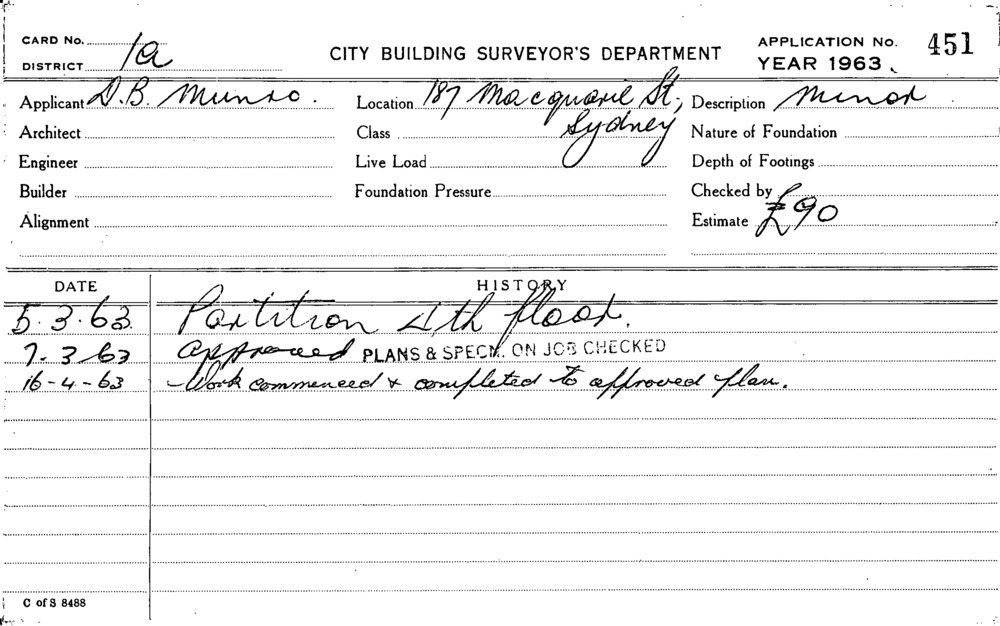 CARD No.
DISTRICT 1a
CITY BUILDING SURVEYOR'S DEPARTMENT
APPLICATION No. 451
YEAR 1963
Applicant D.B. Munro. Location 187 Macquarie St, Sydney Description Minor
Architect Class Nature of Foundation
Engineer Live Load Depth of Footings
Builder Foundation Pressure Checked by
Alignment Estimate £90
DATE HISTORY
5.3.63 Partition 4th floor.
7.3.63 approved PLANS & SPECN. ON JOB CHECKED
16-4-63 -Work commenced & completed to approved plan.
C of S 8488